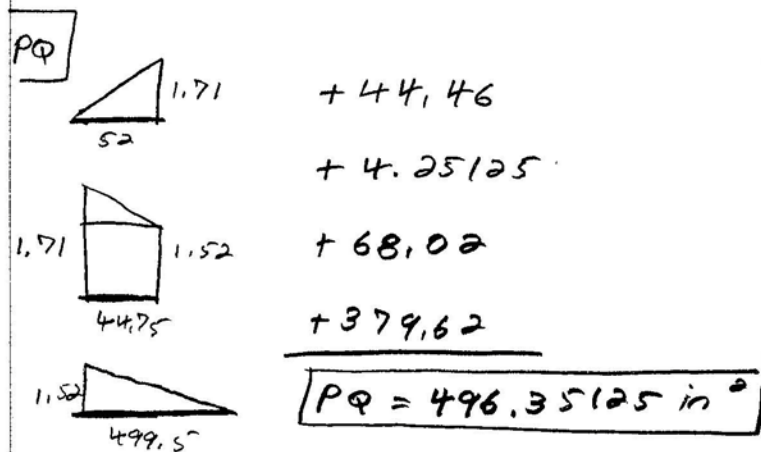 PQ
1.71
52
+ 44.46
+ 4.25125
1.71
1.52
44.75
+ 68.02
+ 379.62
1.52
499.5
PQ = 496.35125 in²